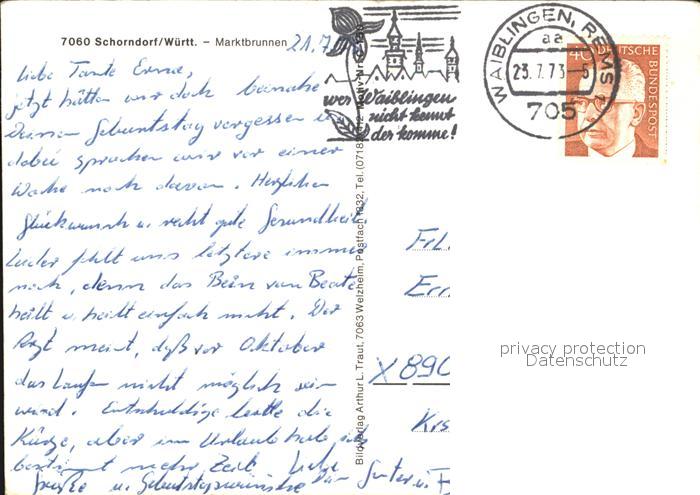 7060 Schorndorf/Württ. – Marktbrunnen 21.7.
Liebe Tante Erna,
jetzt hätten wir doch beinahe
Deinen Geburtstag vergessen u.
dabei sprachen wir vor einer
Woche noch davon. Herzlichen
Glückwunsch u. recht gute Gesundheit.
Leider fehlt uns letztere immer
noch, denn das Bein von Beate
heilt u. heilt einfach nicht. Der
Arzt meint, daß vor Oktober
das Laufen nicht möglich sein
wird. Entschuldige bitte die
Kürze, aber im Urlaub habe ich
bestimmt mehr Zeit. Liebe
Grüße u. Geburtstagswünsche
Günter u.
wer Waiblingen
nicht kennt
der komme!
WAIBLINGEN, REMS
aa
23.7.73-5
705
40 DEUTSCHE
BUNDESPOST
Bildverlag Arthur L. Traut, 7063 Welzheim, Postfach 1832, Tel. (0718
Frl.
Err
X 890
privacy protection
Datenschutz